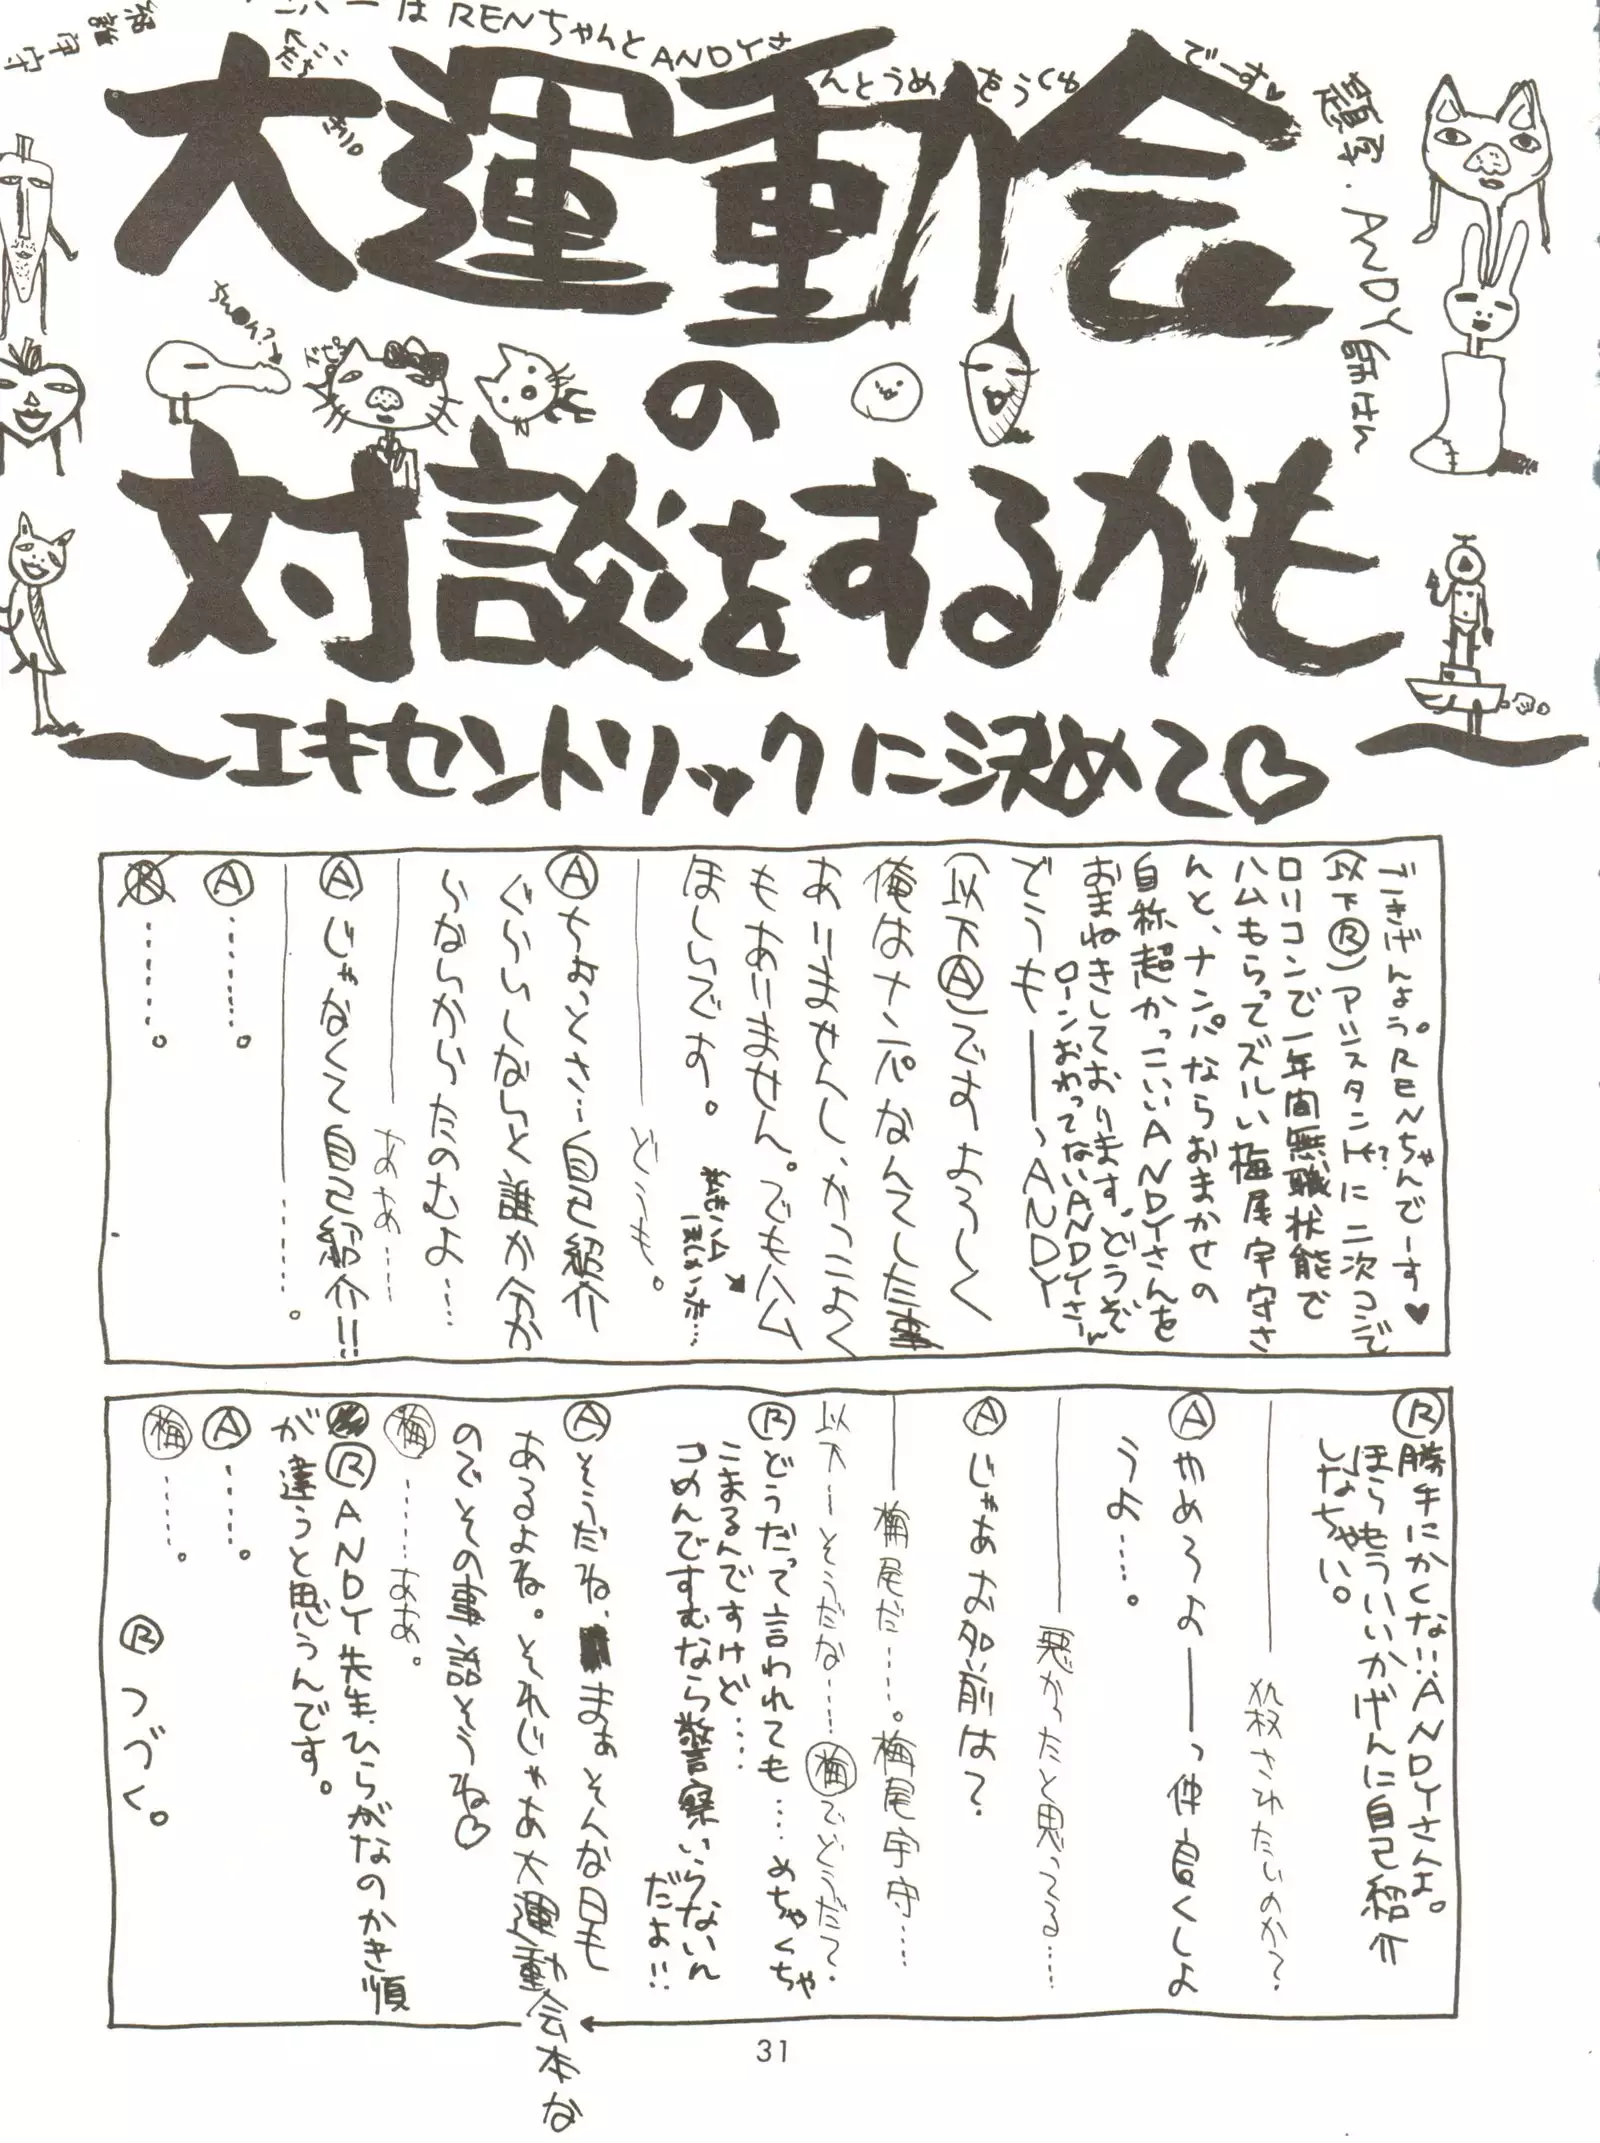 は RENちゃんとANDYさ
んとうめ
でーす♡
大運動会
の
対談をするかも
～エキセントリックに決めて♡～
題字・ANDY
ごきげんよう。RENちゃんでーす♥
(以下Ⓡ)アシスタントに二次コンで
ロリコンで一年間無職状態で
ハムもらってズルい梅尾宇守さ
んと、ナンパならおまかせの
自称超かっこいいANDYさんを
おまねきしております。どうぞ
ローンおわってないANDYさーん
どうも――、ANDY
(以下Ⓐ)ですよろしく
俺はナンパなんてした事
ありませんし、かっこよく
もありません。でもハム
ほしいです。
――どうも。
Ⓐちょっとさ…自己紹介
ぐらいしないと誰か分か
らないからたのむよ……
――ああ……
Ⓐじゃなくて自己紹介!!
――……。
Ⓐ……。
Ⓡ……。
Ⓡ勝手にかくな!!ANDYさんよ。
ほらもういいかげんに自己紹介
しなちゃい。
――殺されたいのか?
Ⓐやめろよ――っ仲良くしよ
うよ……。
――悪かったと思ってる……
Ⓐじゃあお名前は?
――梅尾だ……。梅尾宇守……
以下―そうだな……㊢梅でどうだ?
Ⓡどうだって言われても……めちゃくちゃ
こまるんですけど……
ごめんですむなら警察いらないん
だよ!!
Ⓐそうだね、まぁそんな日も
あるよね。それじゃあ大運動会本な
のでその事話そうね♡
梅……ああ。
ⓇANDY先生、ひらがなのかき順
が違うと思うんです。
Ⓐ……。
梅……。
Ⓡつづく。
31